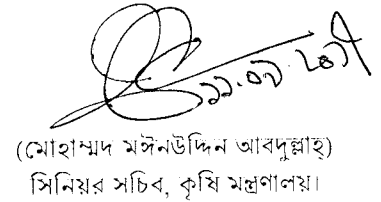 (মোহাম্মদ মঈনউদ্দিন আবদুল্লাহ্)
সিনিয়র সচিব, কৃষি মন্ত্রণালয়।